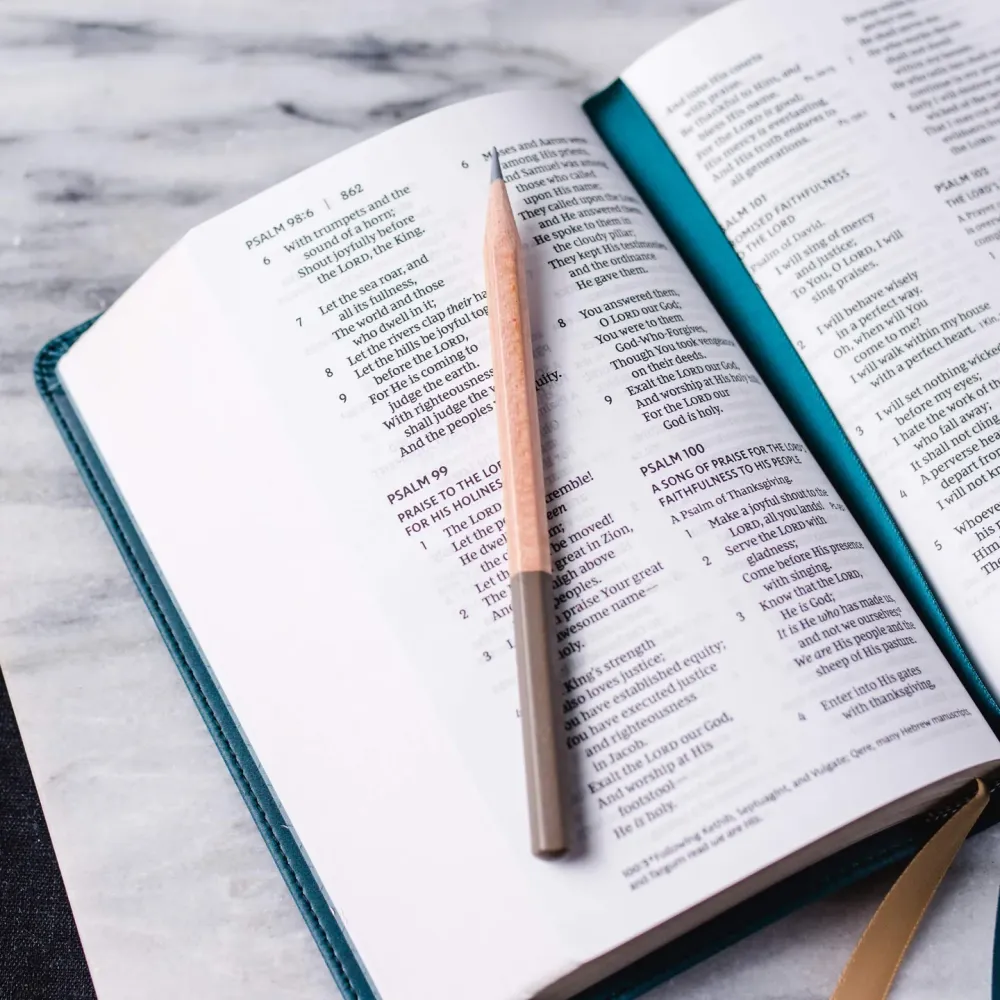 PSALM 98:6 | 862
6 With trumpets and the
sound of a horn;
Shout joyfully before
the LORD, the King.
7 Let the sea roar, and
all its fullness,
The world and those
who dwell in it;
8 Let the rivers clap their ha
Let the hills be joyful tog
before the LORD,
9 For He is coming to
judge the earth.
With righteousness
shall judge the w
And the peoples uity.
PSALM 99
PRAISE TO THE LOR
FOR HIS HOLINES
1 The LORD tremble!
Let the pe
He dwel een
the c ns;
Let th be moved!
2 The great in Zion,
And high above
peoples.
3 praise Your great
wesome name—
oly.
King's strength
also loves justice;
ou have established equity;
You have executed justice
and righteousness
in Jacob.
Exalt the LORD our God,
And worship at His
footstool—
He is holy.
6 Moses and Aaron were
among His priests,
And Samuel was among
those who called
upon His name;
They called upon the LORD
and He answered them.
He spoke to them in
the cloudy pillar;
They kept His testimonies
and the ordinance
He gave them.
8 You answered them,
O LORD our God;
You were to them
God-Who-Forgives,
Though You took vengeance
on their deeds.
9 Exalt the LORD our God,
And worship at His holy hill;
For the LORD our
God is holy.
PSALM 100
A SONG OF PRAISE FOR THE LORD'S
FAITHFULNESS TO HIS PEOPLE
A Psalm of Thanksgiving.
1 Make a joyful shout to the
LORD, all you lands!
2 Serve the LORD with
gladness;
Come before His presence
with singing.
3 Know that the LORD,
He is God;
It is He who has made us,
and not we ourselves;
We are His people and the
sheep of His pasture.
4 Enter into His gates
with thanksgiving,
100:3 Following Kethib, Septuagint, and Vulgate; Qere, many Hebrew manuscript
and Targum read we are His.
And into His courts
with praise.
Be thankful to Him, and
bless His name.
For the LORD is good;
His mercy is everlasting,
And His truth endures to
all generations.
ALM 101
OMISED FAITHFULNESS
O THE LORD
Psalm of David.
I will sing of mercy
and justice;
To You, O LORD, I will
sing praises.
2 I will behave wisely
in a perfect way.
Oh, when will You
come to me?
I will walk within my house
with a perfect heart.
3 I will set nothing wicked
before my eyes;
I hate the work of th
who fall away;
It shall not cling
4 A perverse hea
depart from
I will not kn
5 Whoever
his
Him
The
PSALM 102
THE LORD'
A Praye